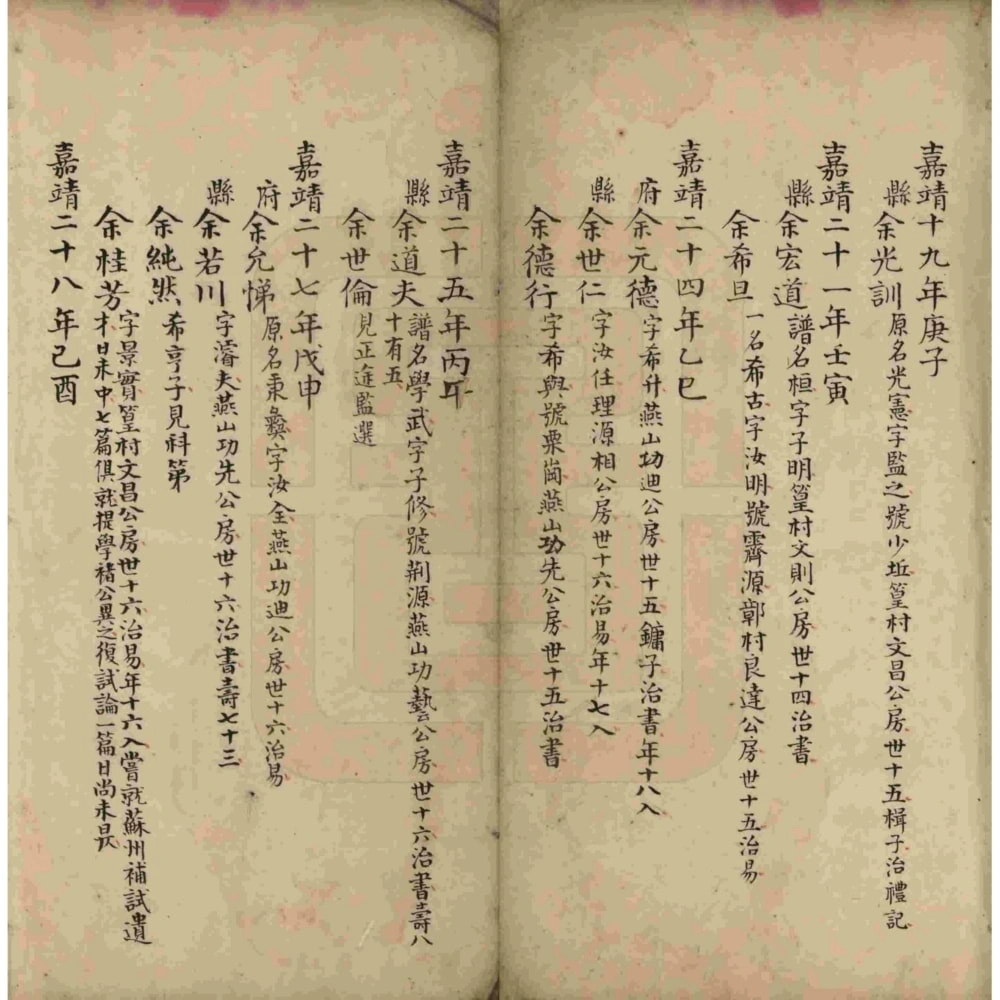 嘉靖十九年庚子
縣余光訓原名光憲字監之號少坵篁村文昌公房世十五楫子治禮記
嘉靖二十一年壬寅
縣余宏道譜名桓字子明篁村文則公房世十四治書
余希旦一名希古字汝明號霽源鄣村良達公房世十五治易
嘉靖二十四年乙巳
府余元德字希升燕山功迪公房世十五鏞子治書年十八入
縣余世仁字汝任理源相公房世十六治易年十七入
余德行字希與號栗崗燕山功先公房世十五治書
嘉靖二十五年丙午
縣余道夫譜名學武字子修號荊源燕山功藝公房世十六治書壽八
十有五
余世倫見正途監選
嘉靖二十七年戊申
府余允悌原名秉彝字汝全燕山功迪公房世十六治易
縣余若川字濬夫燕山功先公房世十六治書壽七十三
余純然希亨子見科第
余桂芳字景實篁村文昌公房世十六治易年十六入嘗就蘇州補試遺
才日未中七篇俱就提學褚公異之復試論一篇日尚未昃
嘉靖二十八年己酉